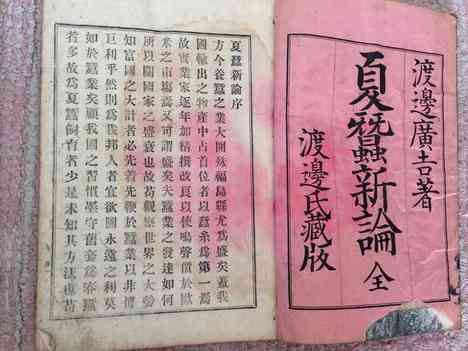 渡邊廣吉著
夏蠶新論 全
渡邊氏藏版
夏蠶新論序
方今養蠶之業大開殊福島縣尤爲盛矣蓋我
國輸出之物産中占首位者以蠶糸爲第一焉
故實業家逐年加精撰改良以使鳴聲價於歐
米之市塲豈又可謂盛矣夫蠶業之發達如何
所以關國家之盛衰也故苟觀察世界之大勢
知富國之大計者必先着先鞭於蠶業以非博
巨利乎然則爲我邦人者宜欲圖永遠之利莫
如於蠶業矣顧我國之習慣墨守舊套爲春蠶
者多故爲夏蠶飼育者少是未知其方法